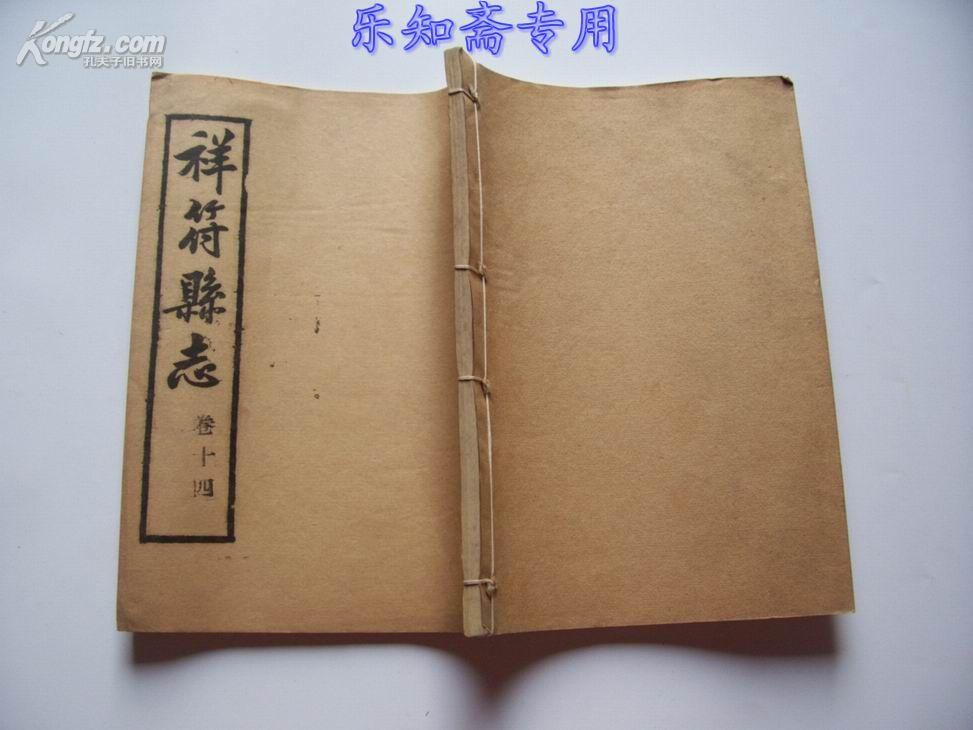 乐知斋专用
Kongfz.com
孔夫子旧书网
祥符縣志
卷十四